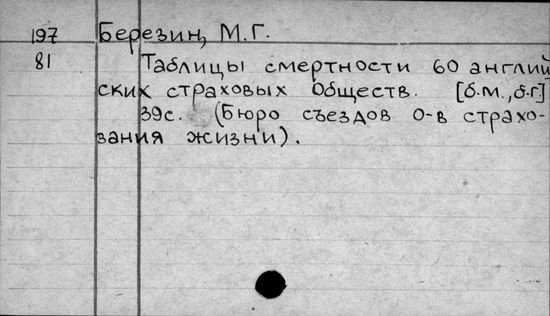 197 Березин, М.Г.
81 Таблицы смертности 60 англий
ских страховых обществ. [б.м., б.г]
39с. (Бюро съездов о-в страхо-
вания жизни).